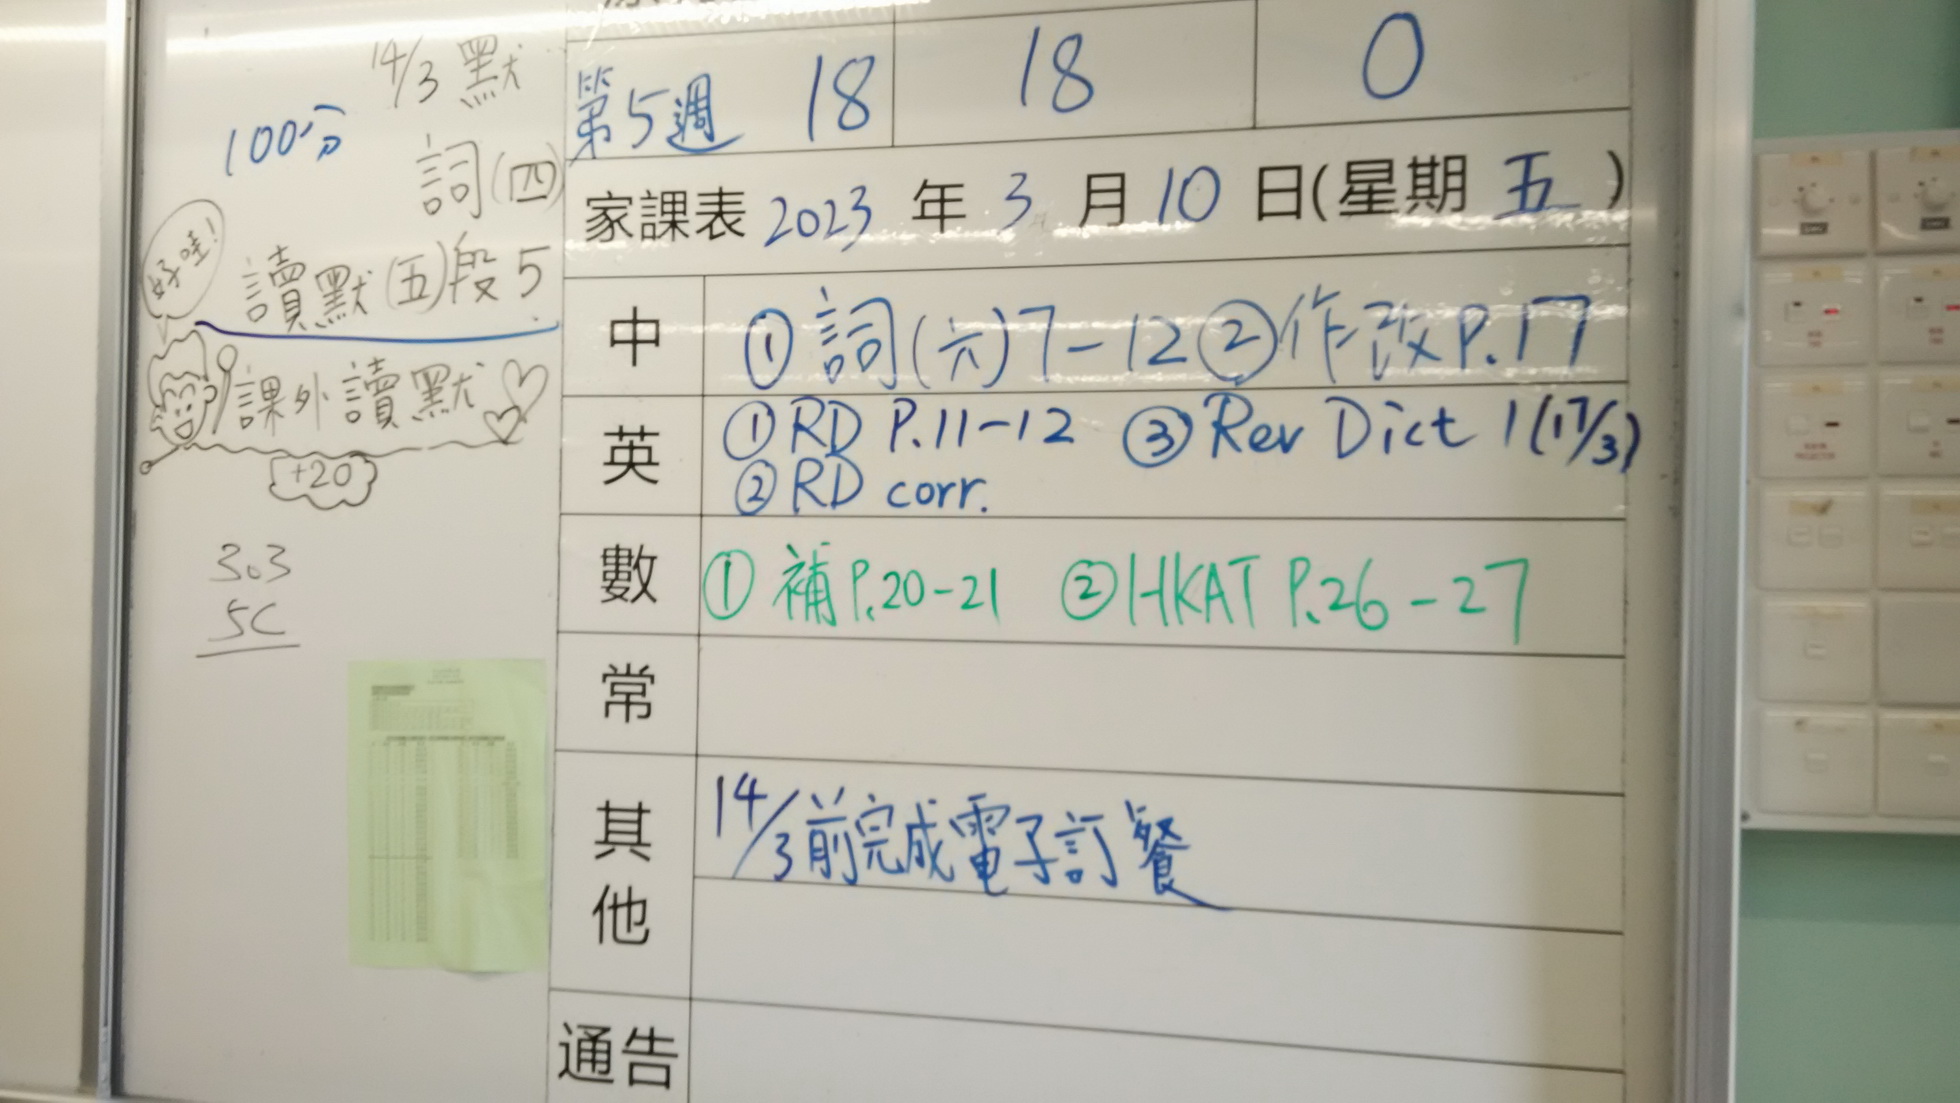 14/3 默
100分
詞(四)
好哇!
讀默(五)段5
課外讀默
+20
303
5C
第5週 18 18 0
家課表 2023 年 3 月 10 日(星期 五 )
中 ① 詞(六)7-12 ② 作改 P.17
英 ① RD P.11-12 ③ Rev Dict 1 (17/3)
② RD corr.
數 ① 補 P.20-21 ② HKAT P.26-27
常
其他 14/3前完成電子訂餐
通告